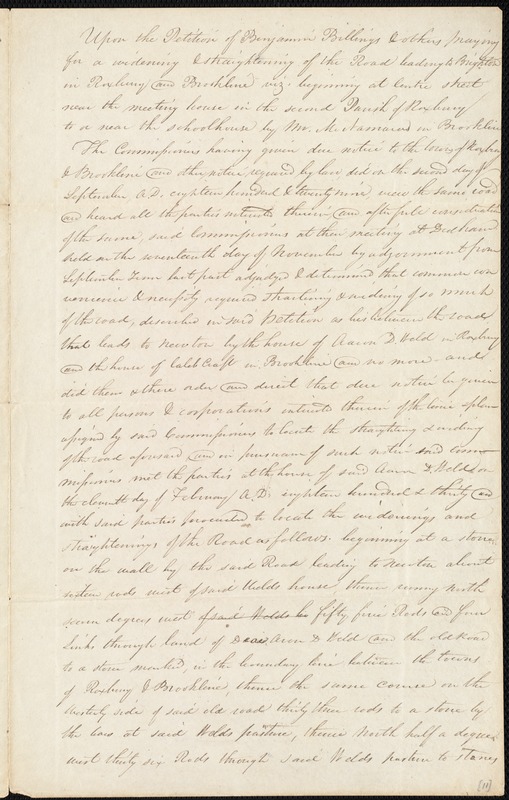 Upon the Petition of Benjamin Billings & others praying
for a widening & straightening of the Road leading to Brighton
in Roxbury and Brookline viz. beginning at Centre street
near the meeting house in the second Parish of Roxbury
to a near the schoolhouse by Mr. McNamaras in Brookline
The Commissioners having given due notice to the towns of Roxbury
& Brookline and other notice required by law did on the second day of
September A.D. eighteen hundred & twenty nine view the same road
and heard all the parties interested therein and after full consideration
of the same, said Commissioners at their meeting at Dedham
held on the seventeenth day of November by adjournment from
September Term last past adjudge & determined, that common con
venience & necessity required straitening & widening of so much
of the road, described in said Petition as lies between the road
that leads to Newton by the house of Aaron D. Weld in Roxbury
and the house of Caleb Craft in Brookline and no more - and
did then & there order and direct that due notice be given
to all persons & corporations interested therein of the time & place
assigned by said Commissioners to locate the straighting & widing
of the road aforesaid, and in pursuance of such notice said Com
missioners met the parties at the house of said Aaron D. Weld on
the eleventh day of February A.D. eighteen hundred & thirty and
with said parties proceeded to locate the widenings and
straightenings of the Road as follows. beginning at a stone
on the wall by the said Road leading to Newton about
sixteen rods west of said Welds house, thence runing north
seven degrees west of said Welds ho fifty five Rods and four
Links through land of Aaron D Weld and the old road
to a stone marked, in the boundary line between the towns
of Roxbury & Brookline, thence the same course on the
westerly side of said old road thirty three rods to a stone by
the bars at said Welds pasture, thence North half a degree
west thirty six Rods through said Welds pasture to stones
(11)